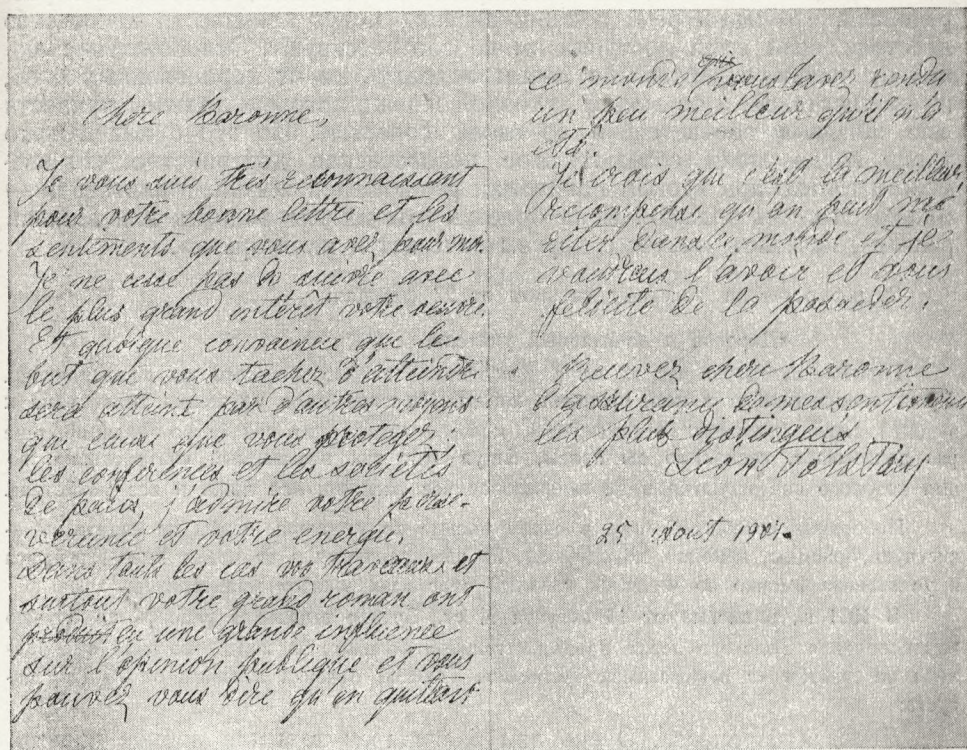 Chère Baronne,
Je vous suis très reconnaissant
pour votre bonne lettre et les
sentements que vous avez pour moi.
Je ne cesse pas de suivre avec
le plus grand intérêt votre oeuvre.
Et quoique convaincu que le
but que vous tachez d'atteindre
sera atteint par d'autres moyens
que ceux que vous protegez:
les conferences et les sociétés
de paix, j'admire votre perse-
verance et votre energie.
Dans touts les cas vos travaux et
surtout votre grand roman ont
produit eu une grande influence
sur l'opinion publique et vous
pouvez vous dire qu'en quittant
ce monde vous l'avez rendu
un peu meilleur qu'il n'a
été.
Je crois que c'est la meilleure
recompense qu'on peut me-
riter dans le monde et je
voudrais l'avoir et vous
felicite de la posseder.
Recevez chere Baronne
l'assurance de mes sentiments
les plus distingués
Léon Tolstoy
25 Aout 1901.